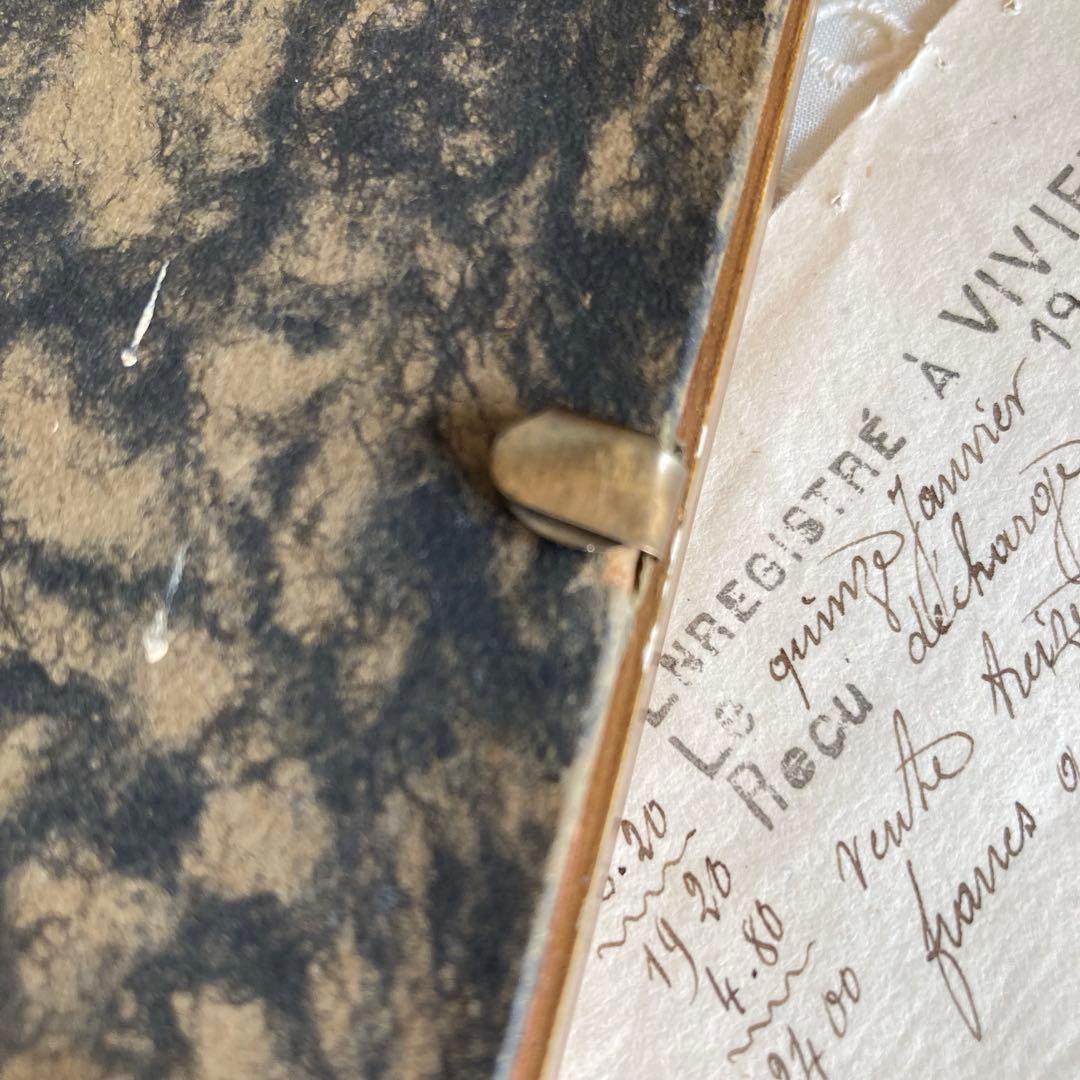 ENREGISTRÉ À VIVIE
Le quinze Janvier 19
Reçu décharge
vente treize
francs
.20
19 20
4.80
24 00